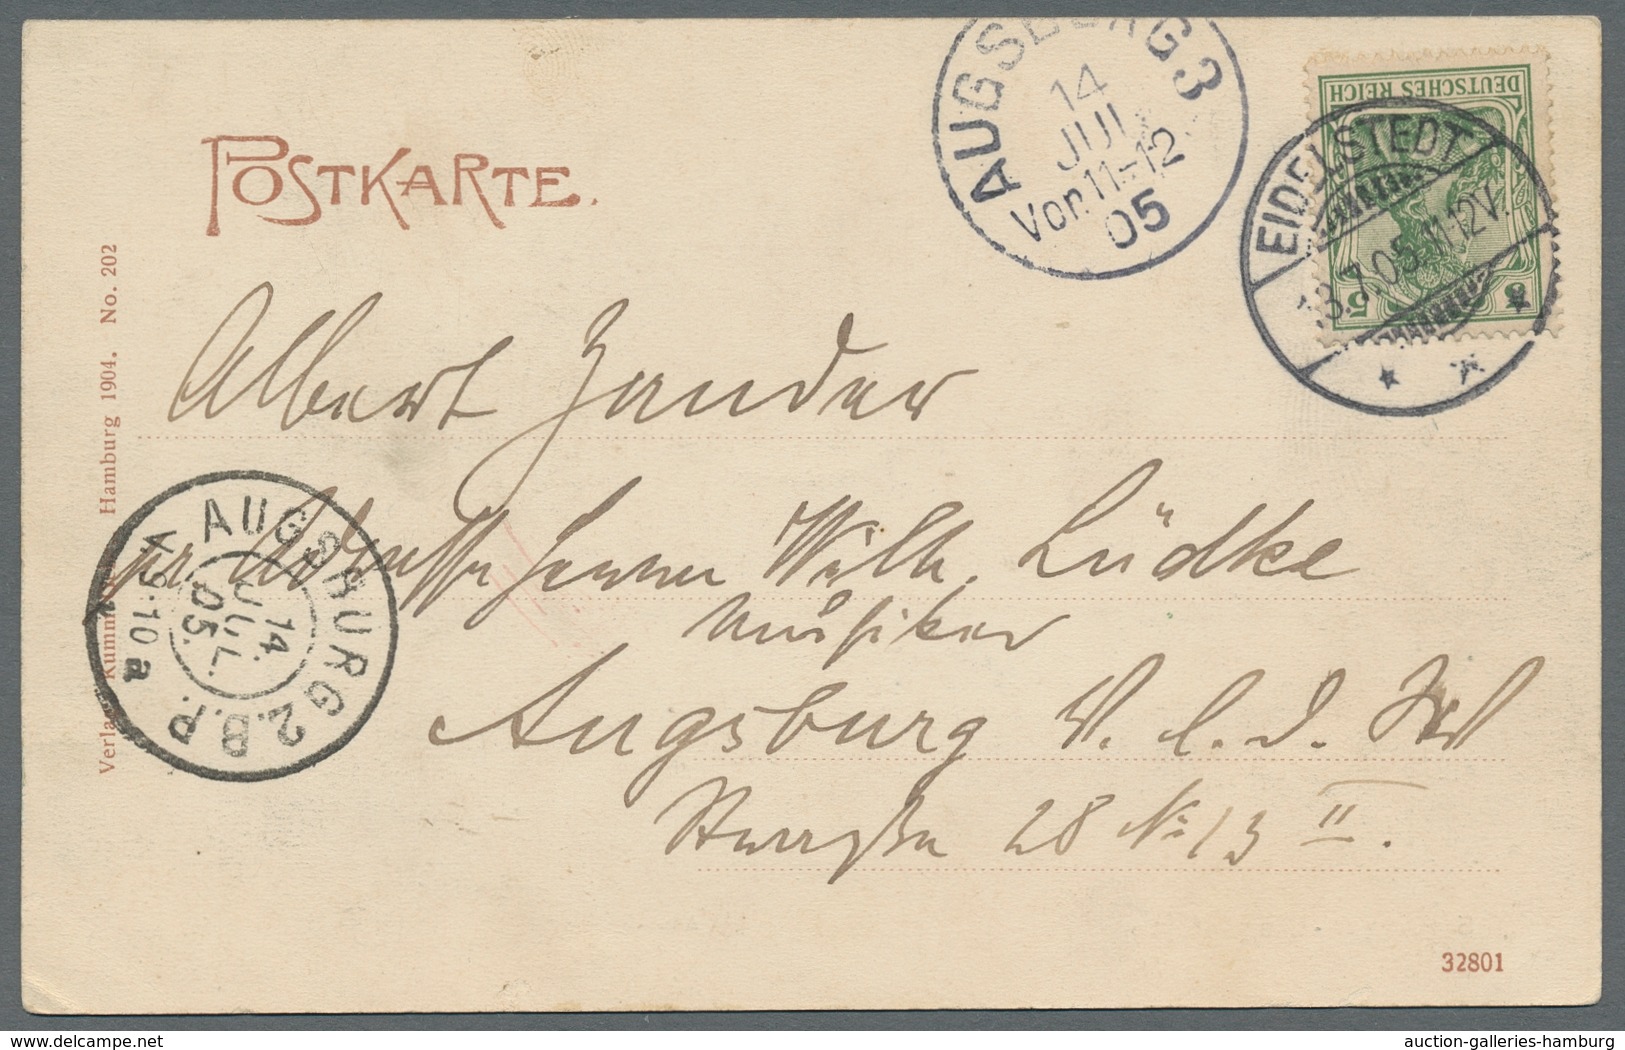 POSTKARTE.
AUGSBURG 3
14
JUL
Vor. 11-12
05
DEUTSCHES REICH
5 5
EIDELSTEDT
13.7.05. 11-12V.
Verlag Kumm
Hamburg 1904. No. 202
Albert Zander
pr Adresse Herrn Wilh. Lüdke
Musiker
Augsburg
28 No 13 II.
AUGSBURG 2.B.P.
14.
JUL.
05.
V 9-10 a
32801
auction-galleries-hamburg